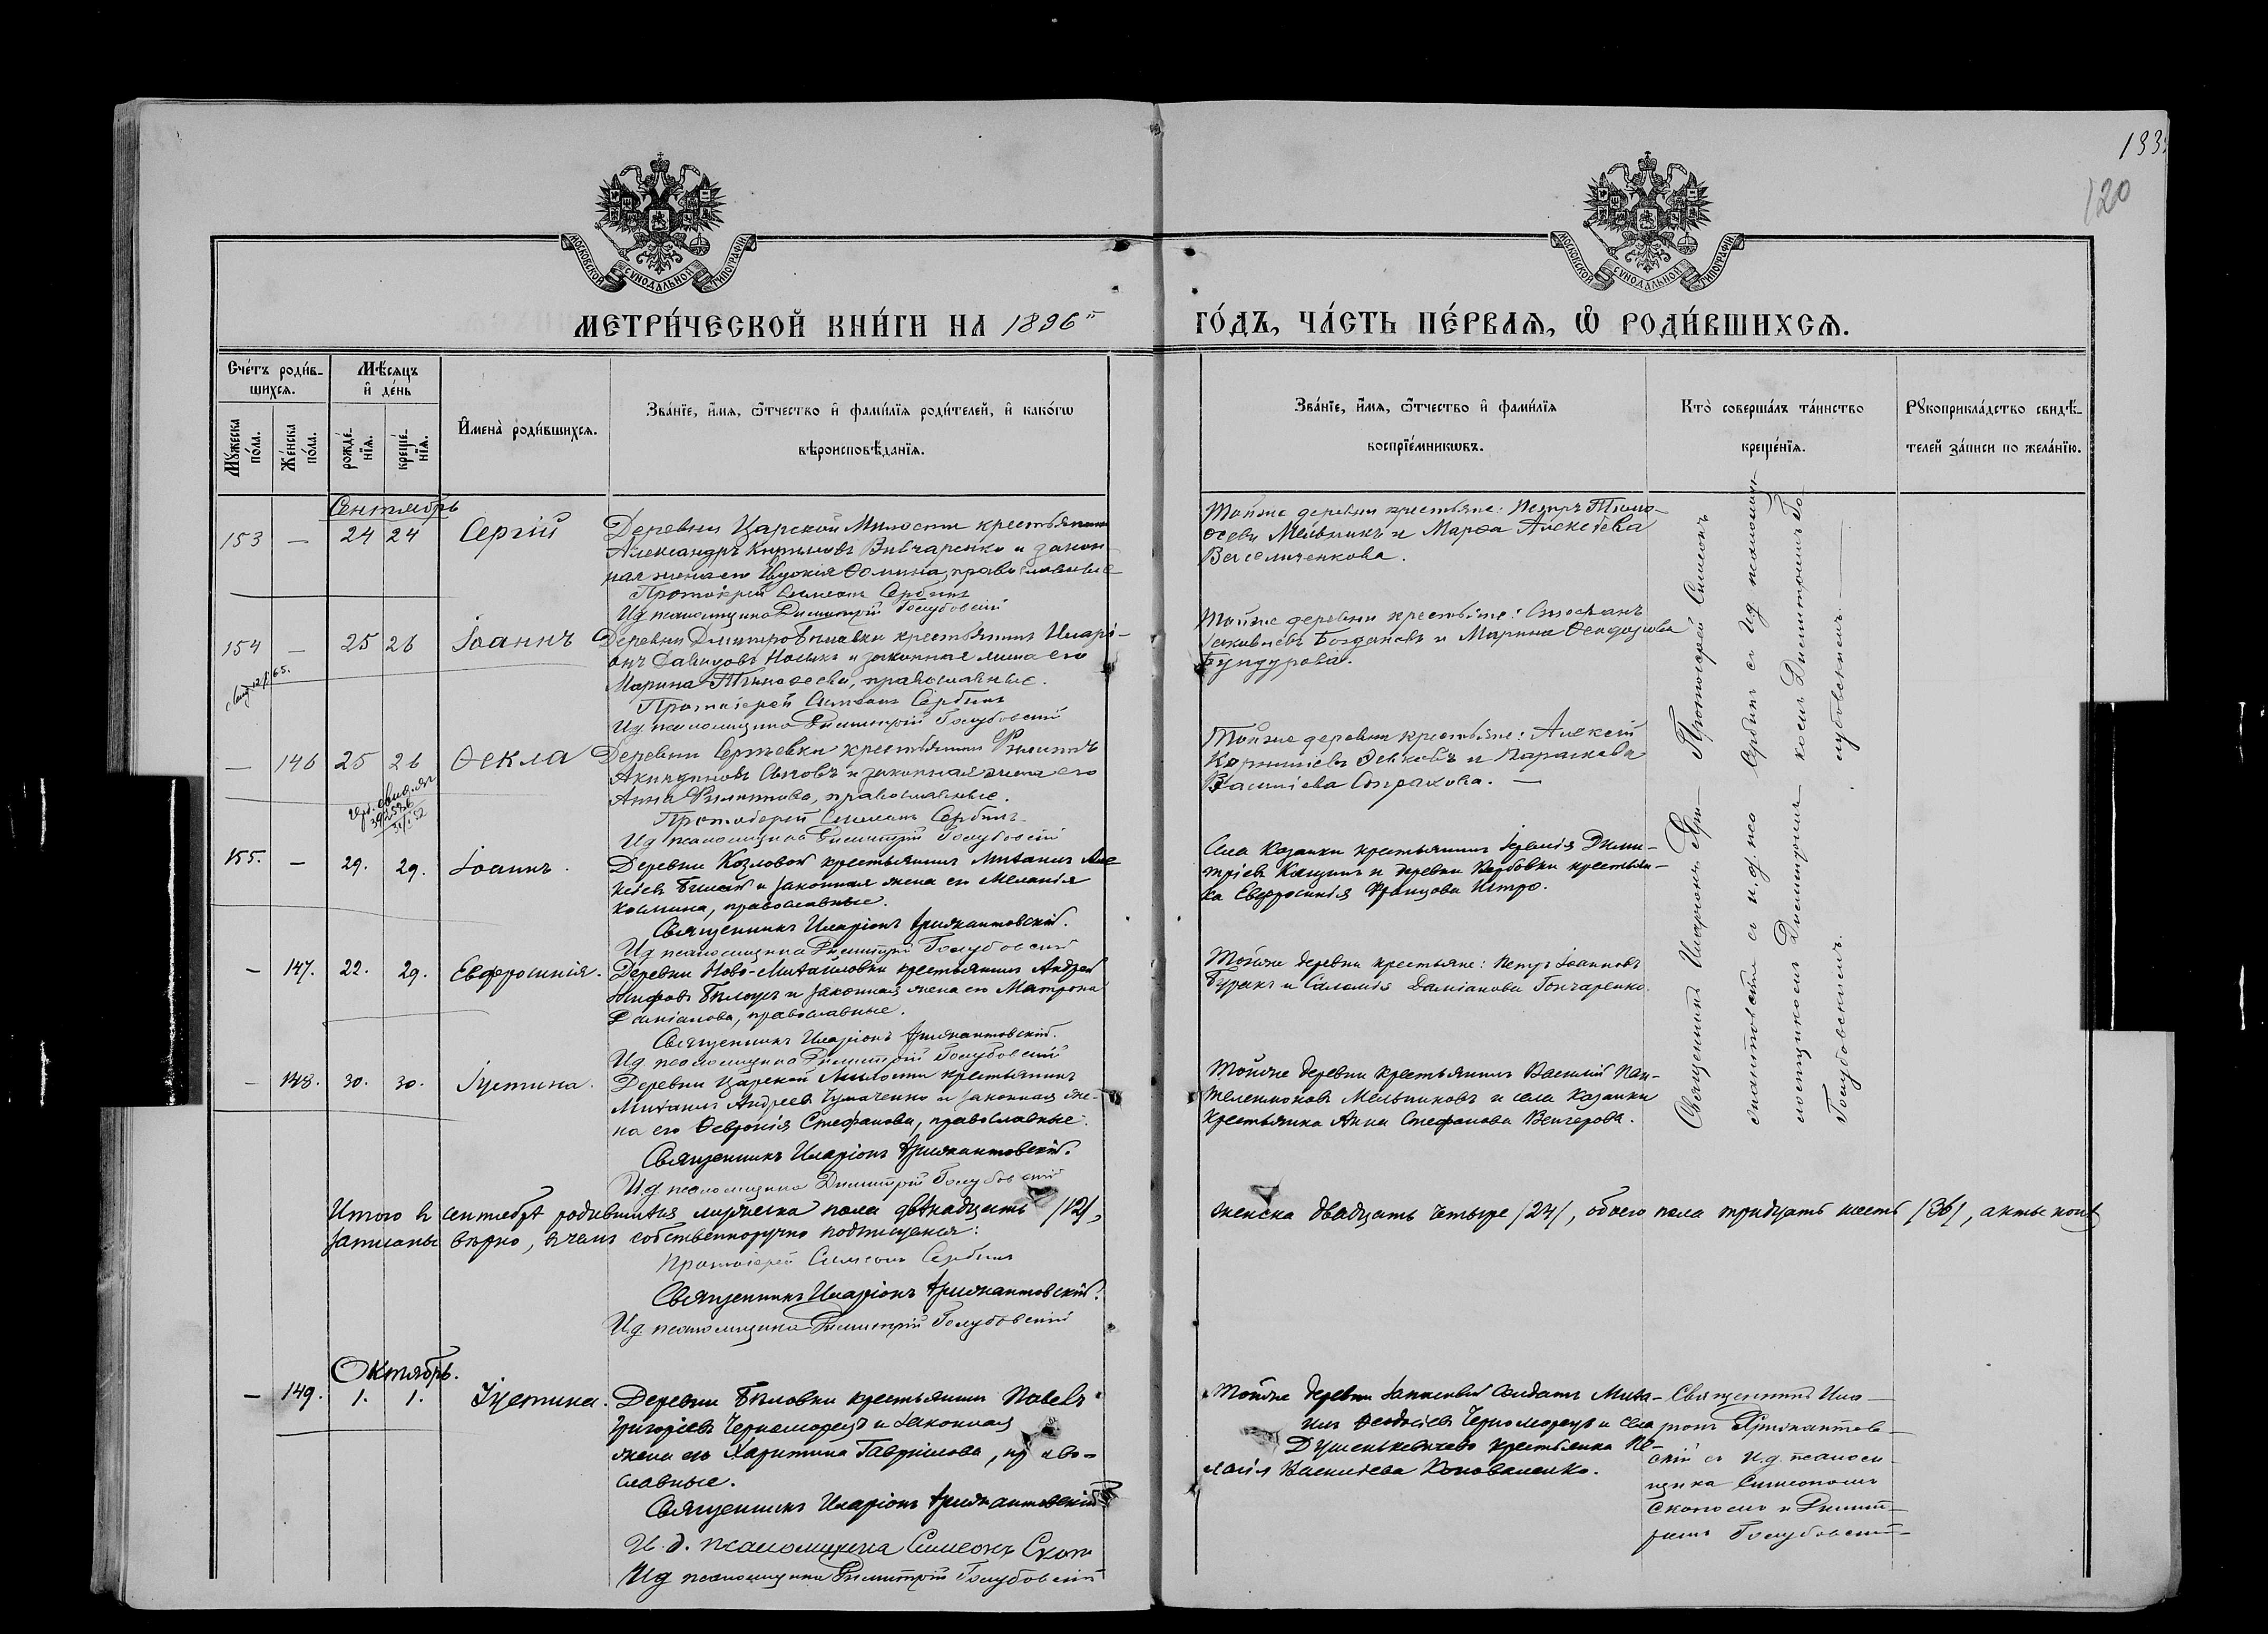 133
120
МОСКОВСКОЙ СѴНОДАЛЬНОЙ ТИПОГРАФІИ
МОСКОВСКОЙ СѴНОДАЛЬНОЙ ТИПОГРАФІИ
МЕТРИ́ЧЕСКОЙ КНИ́ГИ НА 1896й
ГО́ДЪ, ЧА́СТЬ ПЕ́РВАѦ, Ѿ РОДИ́ВШИХСѦ.
Сче́тъ роди́в-
шихсѧ.
Мꙋ́жеска по́ла.
Же́нска по́ла.
Мѣ́сѧцъ
и҆ де́нь
рожде́-
нїѧ.
креще́-
нїѧ.
И҆мена̀ роди́вшихсѧ.
Зва́нїе, и҆́мѧ, ѻ҆́тчество и҆ фами́лїѧ роди́телей, и҆ како́гѡ
вѣроисповѣ́данїѧ.
Зва́нїе, и҆́мѧ, ѻ҆́тчество и҆ фами́лїѧ
воспрїе́мникѡвъ.
Кто̀ соверша́лъ та́инство
креще́нїѧ.
Рꙋкоприкла́дство свидѣ́-
телей за́писи по жела́нїю.
Сентябрь
153 — 24 24 Сергій
Деревни Царской Милости крестьянинъ
Александръ Кирилловъ Вивчаренко и закон-
ная жена его Евдокія Ѳомина, православные
Протоіерей Симеонъ Сербинъ
Ид псаломщика Димитрій Голубовскій
Тойже деревни крестьяне: Петръ Тимо-
ѳеевъ Мельникъ и Марѳа Алексѣева
154 — 25 26 Іоаннъ
Деревни Дмитро Бѣлавки крестьянинъ Иларі-
онъ Давидовъ Носыкъ и законная жена его
Марина Тимоѳеева, православные.
Протоіерей Симеонъ Сербинъ
Ид псаломщика Димитрій Голубовскій
Тойже деревни крестьяне: Стефанъ
Богдановъ и Марина Ѳеодорова
— 146 25 26 Ѳекла
Деревни Сергѣевки крестьянинъ Филиппъ
Акиндиновъ Сычовъ и законная жена его
Анна Филиппова, православные.
Протоіерей Симеонъ Сербинъ
Ид псаломщика Димитрій Голубовскій
Тойже деревни крестьяне: Алексій
и Параскева
Василіева Страхова. —
155. — 29. 29. Іоаннъ.
Деревни Козловой крестьянинъ Михаилъ Але-
ксѣевъ и законная жена его Меланія
Космина, православные.
Священникъ Иларіонъ Крижантовскій.
Ид псаломщика Димитрій Голубовскій
Села Казанки крестьянинъ Іеремія Дими-
тріевъ и деревни Вербовки крестьян-
ка Евфросинія Францова Петро.
— 147. 22. 29. Евфросинія.
Деревни Ново-Михайловки крестьянинъ Андрей
Іосифовъ Бѣлоусъ и законная жена его Матрона
Даміанова, православные.
Священникъ Иларіонъ Крижантовскій.
Ид псаломщика Димитрій Голубовскій
Тойже деревни крестьяне: Петръ Іоанновъ
Буракъ и Саломія Даміанова Гончаренко.
— 148. 30. 30. Іустина.
Деревни Царской Милости крестьянинъ
Михаилъ Андреевъ Чумаченко и законная же-
на его Ѳевронія Стефанова, православные.
Священникъ Иларіонъ Крижантовскій.
И.д. псаломщика Димитрій Голубовскій
Тойже деревни крестьянинъ Василій Пан-
телеимоновъ Мельниковъ и села Казанки
крестьянка Анна Стефанова Венгерова.
Протоіерей Симеонъ
Сербинъ съ Ид псаломщи-
комъ Димитріемъ Го-
лубовскимъ.
Священникъ Иларіонъ Кри-
жантовскій съ и.д. пса-
ломщикомъ Димитріемъ
Голубовскимъ.
Итого въ сентябрѣ родившихся мужеска пола двѣнадцать /12/,
женска двадцать четыре /24/, обоего пола тридцать шесть /36/, акты коихъ
записаны вѣрно, въ чемъ собственноручно подписуемся:
Протоіерей Симеонъ Сербинъ
Священникъ Иларіонъ Крижантовскій.
И.д. псаломщика Димитрій Голубовскій
Октябрь.
— 149. 1. 1. Іустина.
Деревни Бѣловки крестьянинъ Павелъ
Григоріевъ Черноморецъ и законная
жена его Харитина Гавріилова, право-
славные.
Священникъ Иларіонъ Крижантовскій
И.д. псаломщика Симеонъ Скопъ
Ид псаломщика Димитрій Голубовскій
Тойже деревни запасный солдатъ Миха-
илъ Ѳеодосіевъ Черноморецъ и села
Душенькевичево крестьянка Пе-
лагія Василіева Коноваленко.
Священникъ Ила-
ріонъ Крижантов-
скій съ И.д. псалом-
щика Симеономъ
Скопомъ и Димит-
ріемъ Голубовскимъ